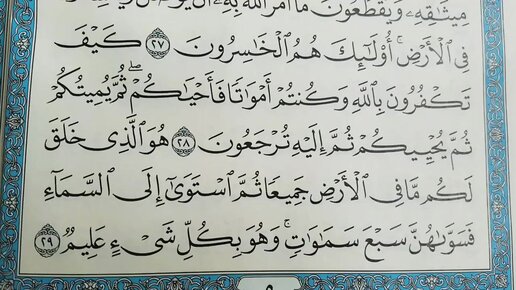 مِيثَٰقِهِۦ وَيَقْطَعُونَ مَآ أَمَرَ ٱللَّهُ بِهِۦٓ أَن
فِي ٱلْأَرْضِ ۚ أُو۟لَٰٓئِكَ هُمُ ٱلْخَٰسِرُونَ ٢٧ كَيْفَ
تَكْفُرُونَ بِٱللَّهِ وَكُنتُمْ أَمْوَٰتًا فَأَحْيَٰكُمْ ۖ ثُمَّ يُمِيتُكُمْ
ثُمَّ يُحْيِيكُمْ ثُمَّ إِلَيْهِ تُرْجَعُونَ ٢٨ هُوَ ٱلَّذِي خَلَقَ
لَكُم مَّا فِي ٱلْأَرْضِ جَمِيعًا ثُمَّ ٱسْتَوَىٰٓ إِلَى ٱلسَّمَآءِ
فَسَوَّىٰهُنَّ سَبْعَ سَمَٰوَٰتٍ ۚ وَهُوَ بِكُلِّ شَيْءٍ عَلِيمٌ ٢٩